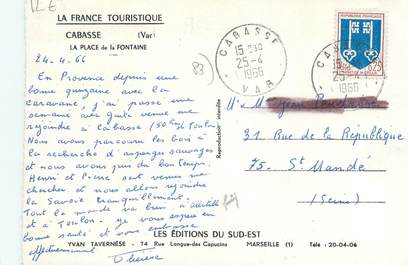 LA FRANCE TOURISTIQUE
CABASSE (Var)
LA PLACE de la FONTAINE
24-4.66
En Provence depuis une
bonne quinzaine avec la
caravane, j'ai passé une
semaine avec venue me
rejoindre à Cabasse (50 km de Toulon)
Nous avons parcouru les bois à
la recherche d'asperges sauvages
et nous avons du bon temps.
Henri et Pierre sont venus me
chercher et nous allons rejoindre
la Savoie tranquillement.
Tout le monde va bien à
et à Toulon. Je vous espère en
bonne santé et vous embrasse
affectueusement
Thérèse
83
CABASSE
15 H30
25-4
1966
VAR
CABASSE
25-4
1966
REPUBLIQUE FRANÇAISE
0,25
MONT-DE-MARSAN
Reproduction interdite
31 Rue de la République
75 - St Mandé
(Seine)
LES ÉDITIONS DU SUD-EST
YVAN TAVERNÈSE - 74 Rue Longue-des Capucins MARSEILLE (1) Tele : 20-04-06